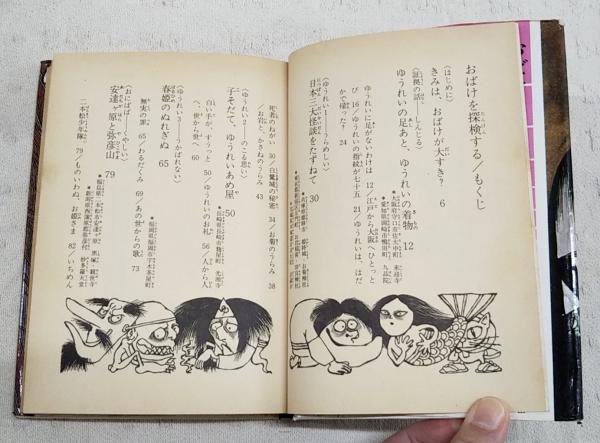 おばけを探検する/もくじ
〈はじめに〉
きみは、おばけが大すき? 6
〈証拠の話――しんじる〉
ゆうれいの足あと、ゆうれいの着物 12
ゆうれいに足がないわけは 12/江戸から大阪へひとっと
び 16/ゆうれいの指紋が七十五 21/ゆうれいは、はだ
かで帰った? 24
〈ゆうれい1――うらめしい〉
日本三大怪談をたずねて 30
死者のねがい 30/白鷺城の秘密 34/お菊のうらみ 38
/お岩と、かさねのうらみ 43
〈ゆうれい2――のこる思い〉
子そだて、ゆうれいあめ屋 50
白い手が、すうっと 50/ゆうれいのお礼 56/人から人
へ、世から世へ 60
〈ゆうれい3――うかばれない〉
春姫のぬれぎぬ 65
無実の罪 65/わるだくみ 69/あの世からの歌 73
〈おにばば――くやしい〉
安達ヶ原と弥彦山 79
二本松少年隊 79/ものいわぬ、お姫さま 82/いちめん